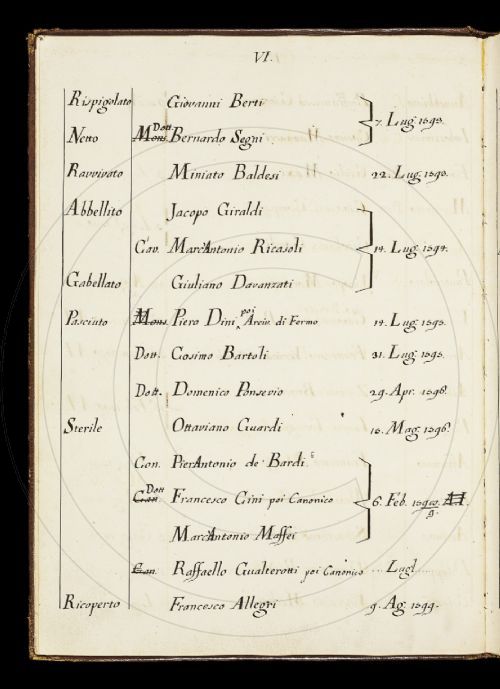 VI.
Rispigolato Giovanni Berti
7. Lug. 1593.
Netto Mons. Dott. Bernardo Segni
Ravvivato Miniato Baldesi 22. Lug. 1593.
Abbellito Jacopo Giraldi
Cav. Marc'Antonio Ricasoli 14. Lug. 1594.
Gabellato Giuliano Davanzati
Pasciuto Mons. Piero Dini poi Arciv. di Fermo 14. Lug. 1595.
Dott. Cosimo Bartoli 31. Lug. 1595.
Dott. Domenico Ponsevio 29. Apr. 1596.
Sterile Ottaviano Guardi 15. Mag. 1596.
Con. PierAntonio de' Bardi
Can. Dott. Francesco Cini poi Canonico 6. Feb. 9.
Marc'Antonio Maffei
Can. Raffaello Gualterotti poi Canonico ... Lugl......
Ricoperto Francesco Allegri 9. Ag. 1599.